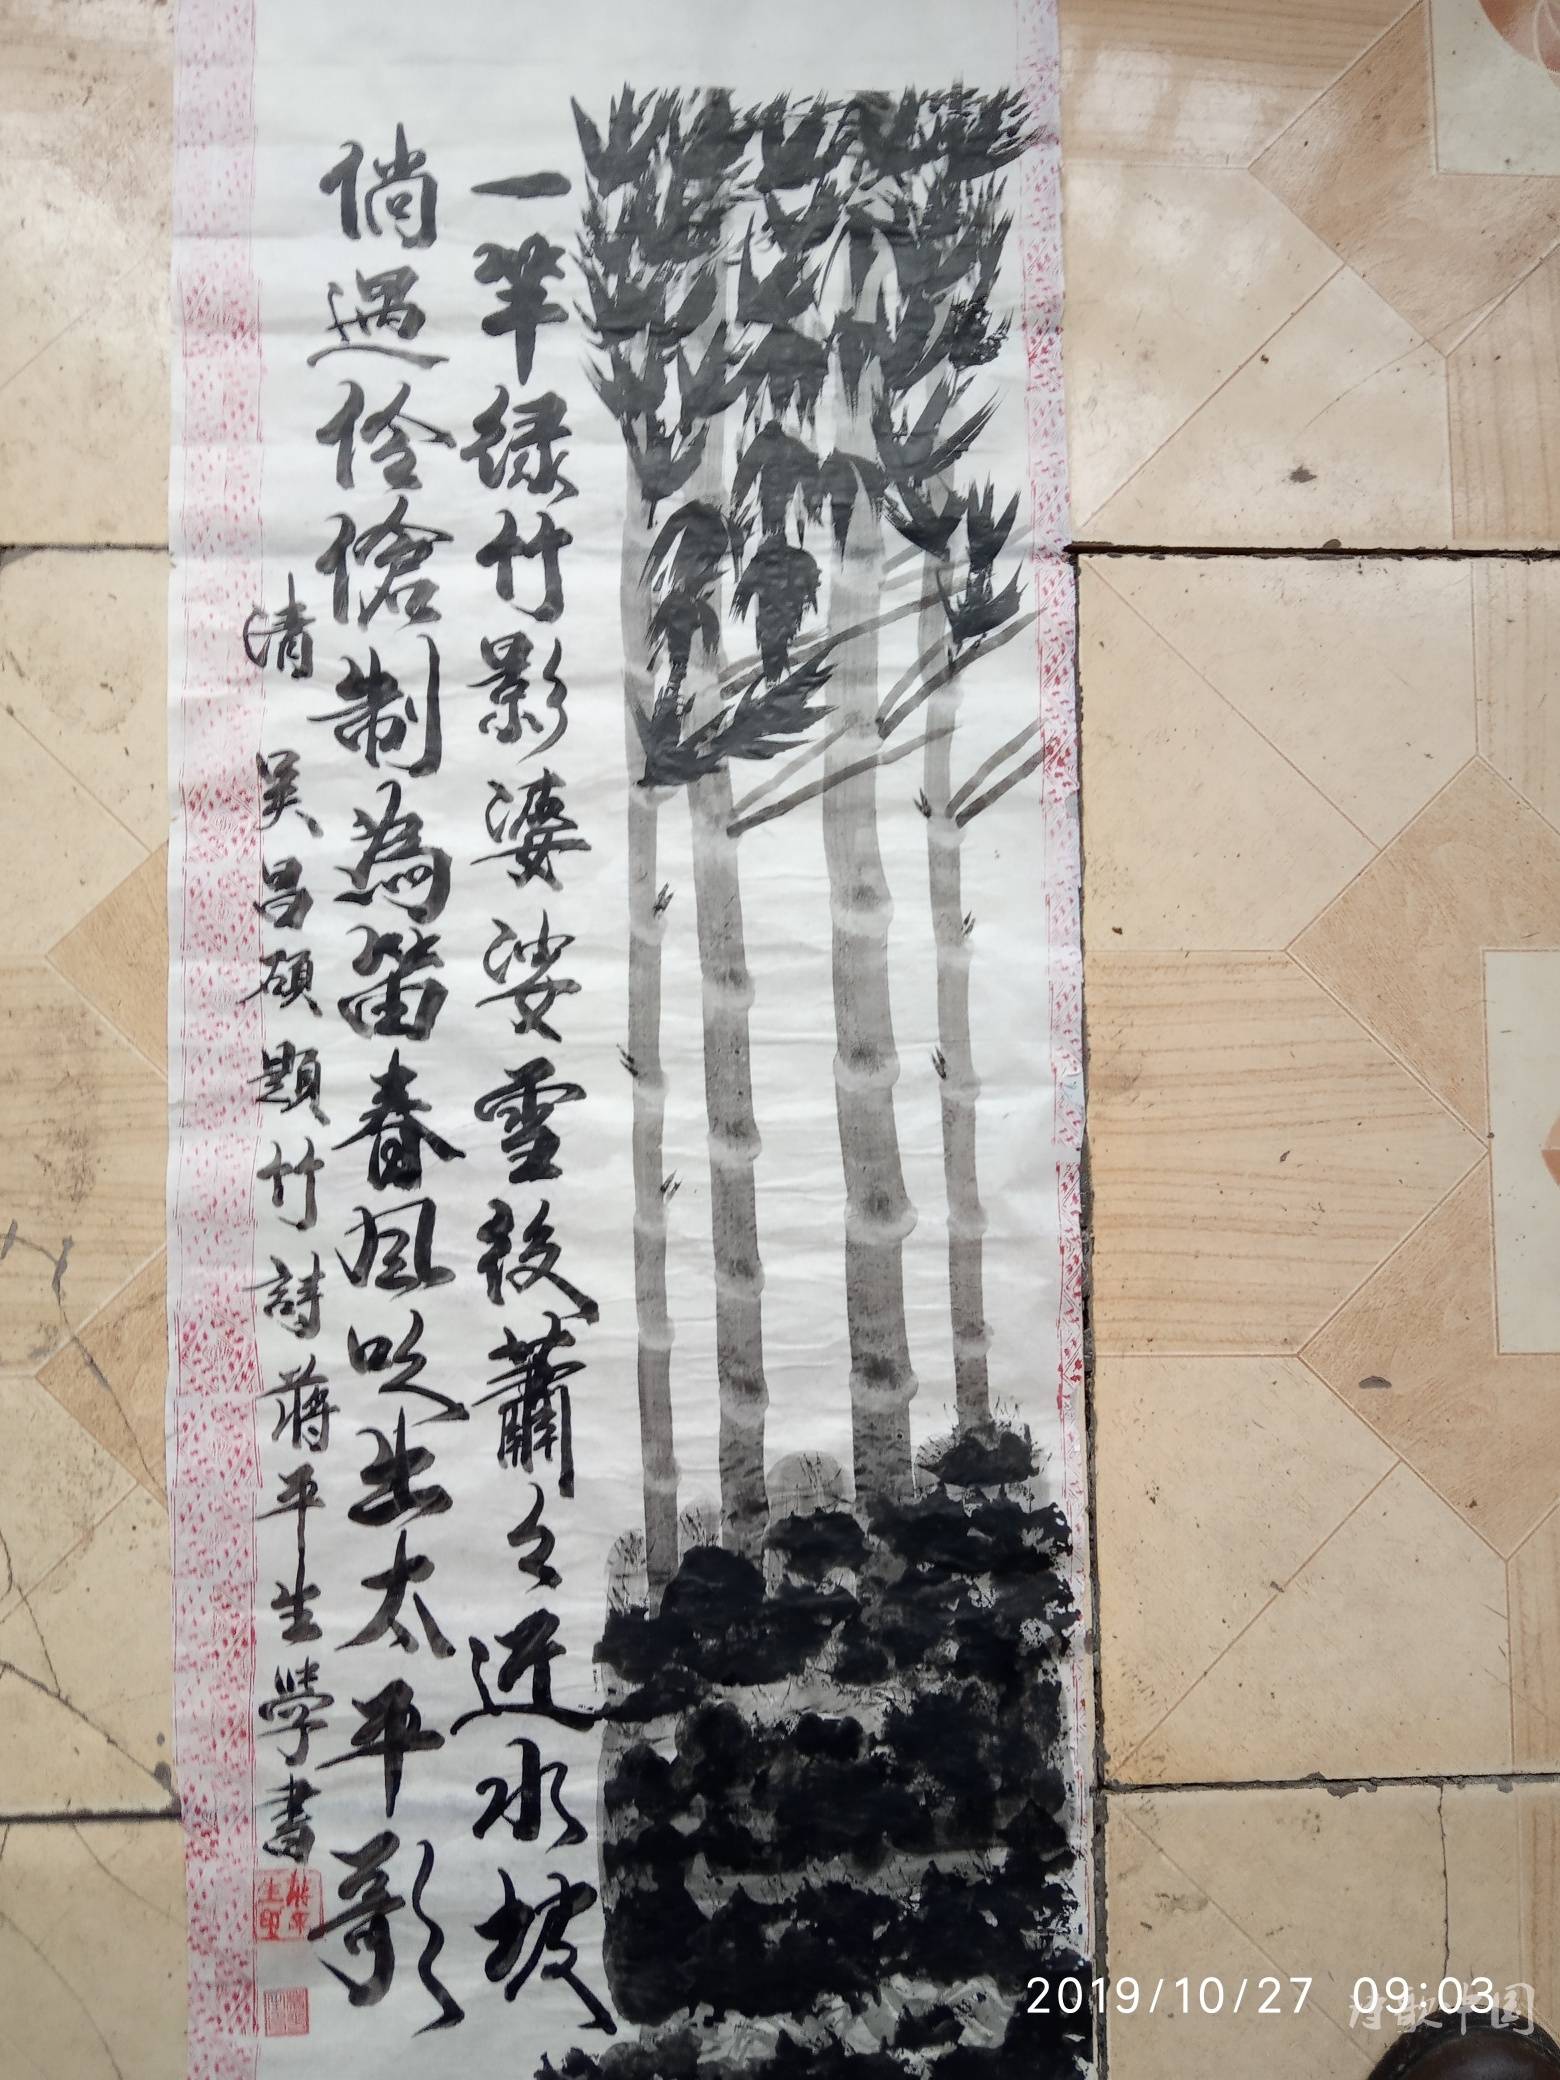 一竿绿竹影婆娑雪後蕭々近水坡
倘遇伶傖制為笛春風吹出太平歌
清 吴昌碩題竹詩蒋平生學書
蒋平生印
2019/10/27 09:03
诗歌中国